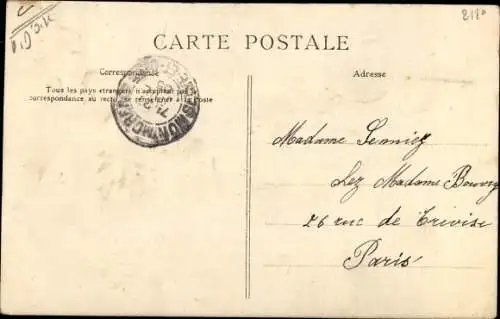 CARTE POSTALE
Correspondance
Adresse
Tous les pays étrangers n'acceptent pas la
correspondance au recto (se renseigner à la Poste
Madame
Chez Madame
26 rue de Trévise
Paris